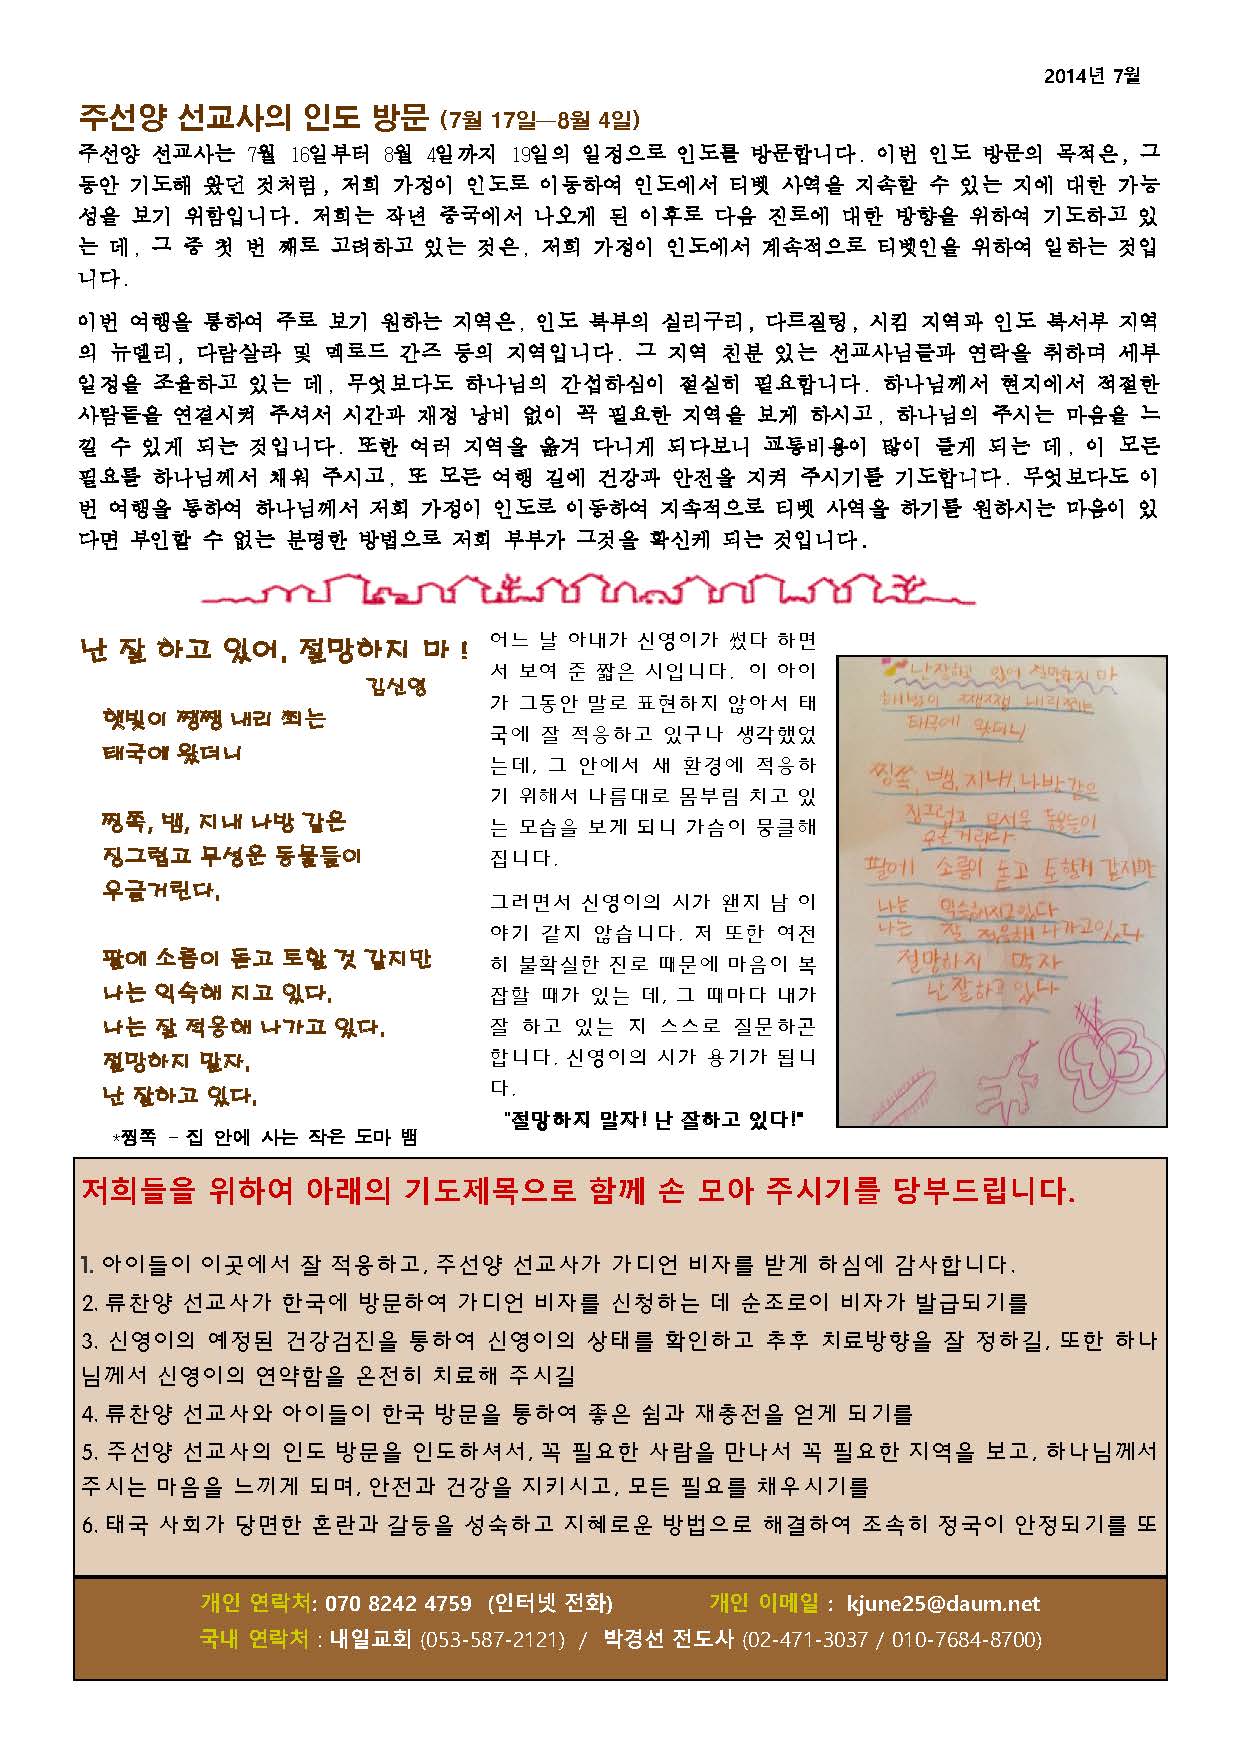 2014년 7월
주선양 선교사의 인도 방문 (7월 17일—8월 4일)
주선양 선교사는 7월 16일부터 8월 4일까지 19일의 일정으로 인도를 방문합니다. 이번 인도 방문의 목적은, 그
동안 기도해 왔던 것처럼, 저희 가정이 인도로 이동하여 인도에서 티벳 사역을 지속할 수 있는 지에 대한 가능
성을 보기 위함입니다. 저희는 작년 중국에서 나오게 된 이후로 다음 진로에 대한 방향을 위하여 기도하고 있
는 데, 그 중 첫 번 째로 고려하고 있는 것은, 저희 가정이 인도에서 계속적으로 티벳인을 위하여 일하는 것입
니다.
이번 여행을 통하여 주로 보기 원하는 지역은, 인도 북부의 실리구리, 다르질링, 시킴 지역과 인도 북서부 지역
의 뉴델리, 다람살라 및 멕로드 간즈 등의 지역입니다. 그 지역 친분 있는 선교사님들과 연락을 취하며 세부
일정을 조율하고 있는 데, 무엇보다도 하나님의 간섭하심이 절실히 필요합니다. 하나님께서 현지에서 적절한
사람들을 연결시켜 주셔서 시간과 재정 낭비 없이 꼭 필요한 지역을 보게 하시고, 하나님의 주시는 마음을 느
낄 수 있게 되는 것입니다. 또한 여러 지역을 옮겨 다니게 되다보니 교통비용이 많이 들게 되는 데, 이 모든
필요를 하나님께서 채워 주시고, 또 모든 여행 길에 건강과 안전을 지켜 주시기를 기도합니다. 무엇보다도 이
번 여행을 통하여 하나님께서 저희 가정이 인도로 이동하여 지속적으로 티벳 사역을 하기를 원하시는 마음이 있
다면 부인할 수 없는 분명한 방법으로 저희 부부가 그것을 확신케 되는 것입니다.
난 잘 하고 있어, 절망하지 마 !
김신영
햇빛이 쨍쨍 내리 쬐는
태국에 왔더니
찡쪽, 뱀, 지내 나방 같은
징그럽고 무성운 동물들이
우글거린다.
팔에 소름이 돋고 토할 것 같지만
나는 익숙해 지고 있다.
나는 잘 적응해 나가고 있다.
절망하지 말자.
난 잘하고 있다.
*찡쪽 - 집 안에 사는 작은 도마 뱀
어느 날 아내가 신영이가 썼다 하면
서 보여 준 짧은 시입니다. 이 아이
가 그동안 말로 표현하지 않아서 태
국에 잘 적응하고 있구나 생각했었
는데, 그 안에서 새 환경에 적응하
기 위해서 나름대로 몸부림 치고 있
는 모습을 보게 되니 가슴이 뭉클해
집니다.
그러면서 신영이의 시가 왠지 남 이
야기 같지 않습니다. 저 또한 여전
히 불확실한 진로 때문에 마음이 복
잡할 때가 있는 데, 그 때마다 내가
잘 하고 있는 지 스스로 질문하곤
합니다. 신영이의 시가 용기가 됩니
다.
"절망하지 말자! 난 잘하고 있다!"
난잘하고 있어 절망하지 마
해빛이 쨍쨍 내리쬐는
태국에 왔더니
찡쪽, 뱀, 지내, 나방 같은
징그럽고 무서운 동물들이
우글거린다
팔에 소름이 돋고 토할게 같지만
나는 익숙해지고있다
나는 잘 적응해 나가고있다
절망하지 막자
난 잘하고 있다
저희들을 위하여 아래의 기도제목으로 함께 손 모아 주시기를 당부드립니다.
1. 아이들이 이곳에서 잘 적응하고, 주선양 선교사가 가디언 비자를 받게 하심에 감사합니다.
2. 류찬양 선교사가 한국에 방문하여 가디언 비자를 신청하는 데 순조로이 비자가 발급되기를
3. 신영이의 예정된 건강검진을 통하여 신영이의 상태를 확인하고 추후 치료방향을 잘 정하길, 또한 하나
님께서 신영이의 연약함을 온전히 치료해 주시길
4. 류찬양 선교사와 아이들이 한국 방문을 통하여 좋은 쉼과 재충전을 얻게 되기를
5. 주선양 선교사의 인도 방문을 인도하셔서, 꼭 필요한 사람을 만나서 꼭 필요한 지역을 보고, 하나님께서
주시는 마음을 느끼게 되며, 안전과 건강을 지키시고, 모든 필요를 채우시기를
6. 태국 사회가 당면한 혼란과 갈등을 성숙하고 지혜로운 방법으로 해결하여 조속히 정국이 안정되기를 또
개인 연락처: 070 8242 4759 (인터넷 전화) 개인 이메일 : kjune25@daum.net
국내 연락처 : 내일교회 (053-587-2121) / 박경선 전도사 (02-471-3037 / 010-7684-8700)